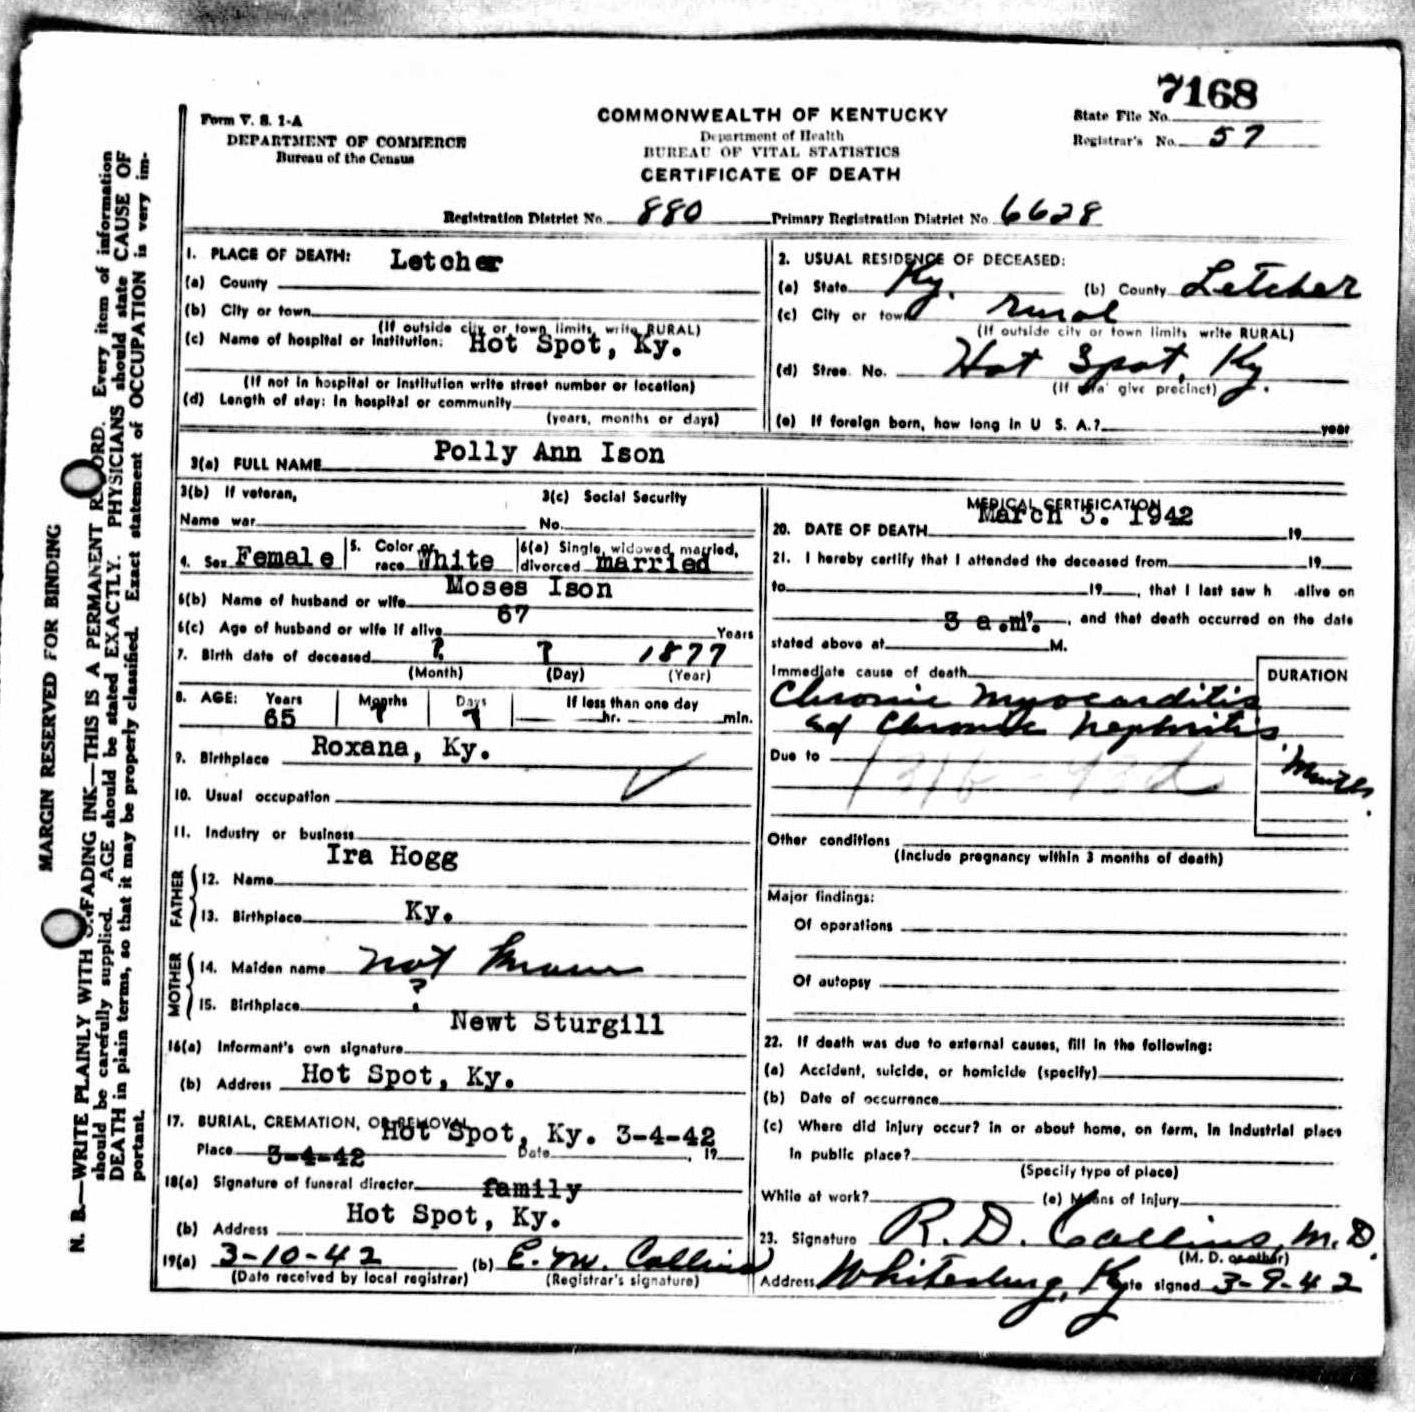 7168
Form V. S. 1-A
DEPARTMENT OF COMMERCE
Bureau of the Census
COMMONWEALTH OF KENTUCKY
Department of Health
BUREAU OF VITAL STATISTICS
CERTIFICATE OF DEATH
State File No.
Registrar's No. 57
Registration District No. 880 Primary Registration District No. 6628
1. PLACE OF DEATH: Letcher
(a) County
(b) City or town
(If outside city or town limits, write RURAL)
(c) Name of hospital or Institution: Hot Spot, Ky.
(If not in hospital or institution write street number or location)
(d) Length of stay: In hospital or community
(years, months or days)
2. USUAL RESIDENCE OF DECEASED:
(a) State Ky. (b) County Letcher
(c) City or town rural
(If outside city or town limits write RURAL)
(d) Stree. No. Hot Spot, Ky.
(If give precinct)
(e) If foreign born, how long in U S. A.? year
3(a) FULL NAME Polly Ann Ison
3(b) If veteran,
Name war
3(c) Social Security
No.
4. Sex Female 5. Color or race White 6(a) Single, widowed, married, divorced married
6(b) Name of husband or wife Moses Ison
6(c) Age of husband or wife if alive 67 Years
7. Birth date of deceased ? ? 1877
(Month) (Day) (Year)
8. AGE: Years Months Days If less than one day
65 ? ? hr. min.
9. Birthplace Roxana, Ky.
10. Usual occupation
11. Industry or business
FATHER
12. Name Ira Hogg
13. Birthplace Ky.
MOTHER
14. Maiden name not known
15. Birthplace ?
16(a) Informant's own signature Newt Sturgill
(b) Address Hot Spot, Ky.
17. BURIAL, CREMATION, OR REMOVAL
Hot Spot, Ky. 3-4-42
Place 3-4-42 Date , 19
18(a) Signature of funeral director family
(b) Address Hot Spot, Ky.
19(a) 3-10-42 (b) E. M. Collins
(Date received by local registrar) (Registrar's signature)
MEDICAL CERTIFICATION
20. DATE OF DEATH March 3. 1942 19
21. I hereby certify that I attended the deceased from 19
to 19 , that I last saw h alive on
3 a.m. , and that death occurred on the date
stated above at M.
Immediate cause of death
DURATION
Chronic Myocarditis
ed Chronic Nephritis
Due to
Other conditions
(Include pregnancy within 3 months of death)
Major findings:
Of operations
Of autopsy
22. If death was due to external causes, fill in the following:
(a) Accident, suicide, or homicide (specify)
(b) Date of occurrence
(c) Where did injury occur? in or about home, on farm, in industrial place
In public place?
(Specify type of place)
While at work? (e) Means of injury
23. Signature R. D. Collins, M. D.
(M. D. or other)
Address Whitesburg, Ky Date signed 3-9-42
MARGIN RESERVED FOR BINDING
N. B.—WRITE PLAINLY WITH UNFADING INK—THIS IS A PERMANENT RECORD. Every item of information
should be carefully supplied. AGE should be stated EXACTLY. PHYSICIANS should state CAUSE OF
DEATH in plain terms, so that it may be properly classified. Exact statement of OCCUPATION is very im-
portant.